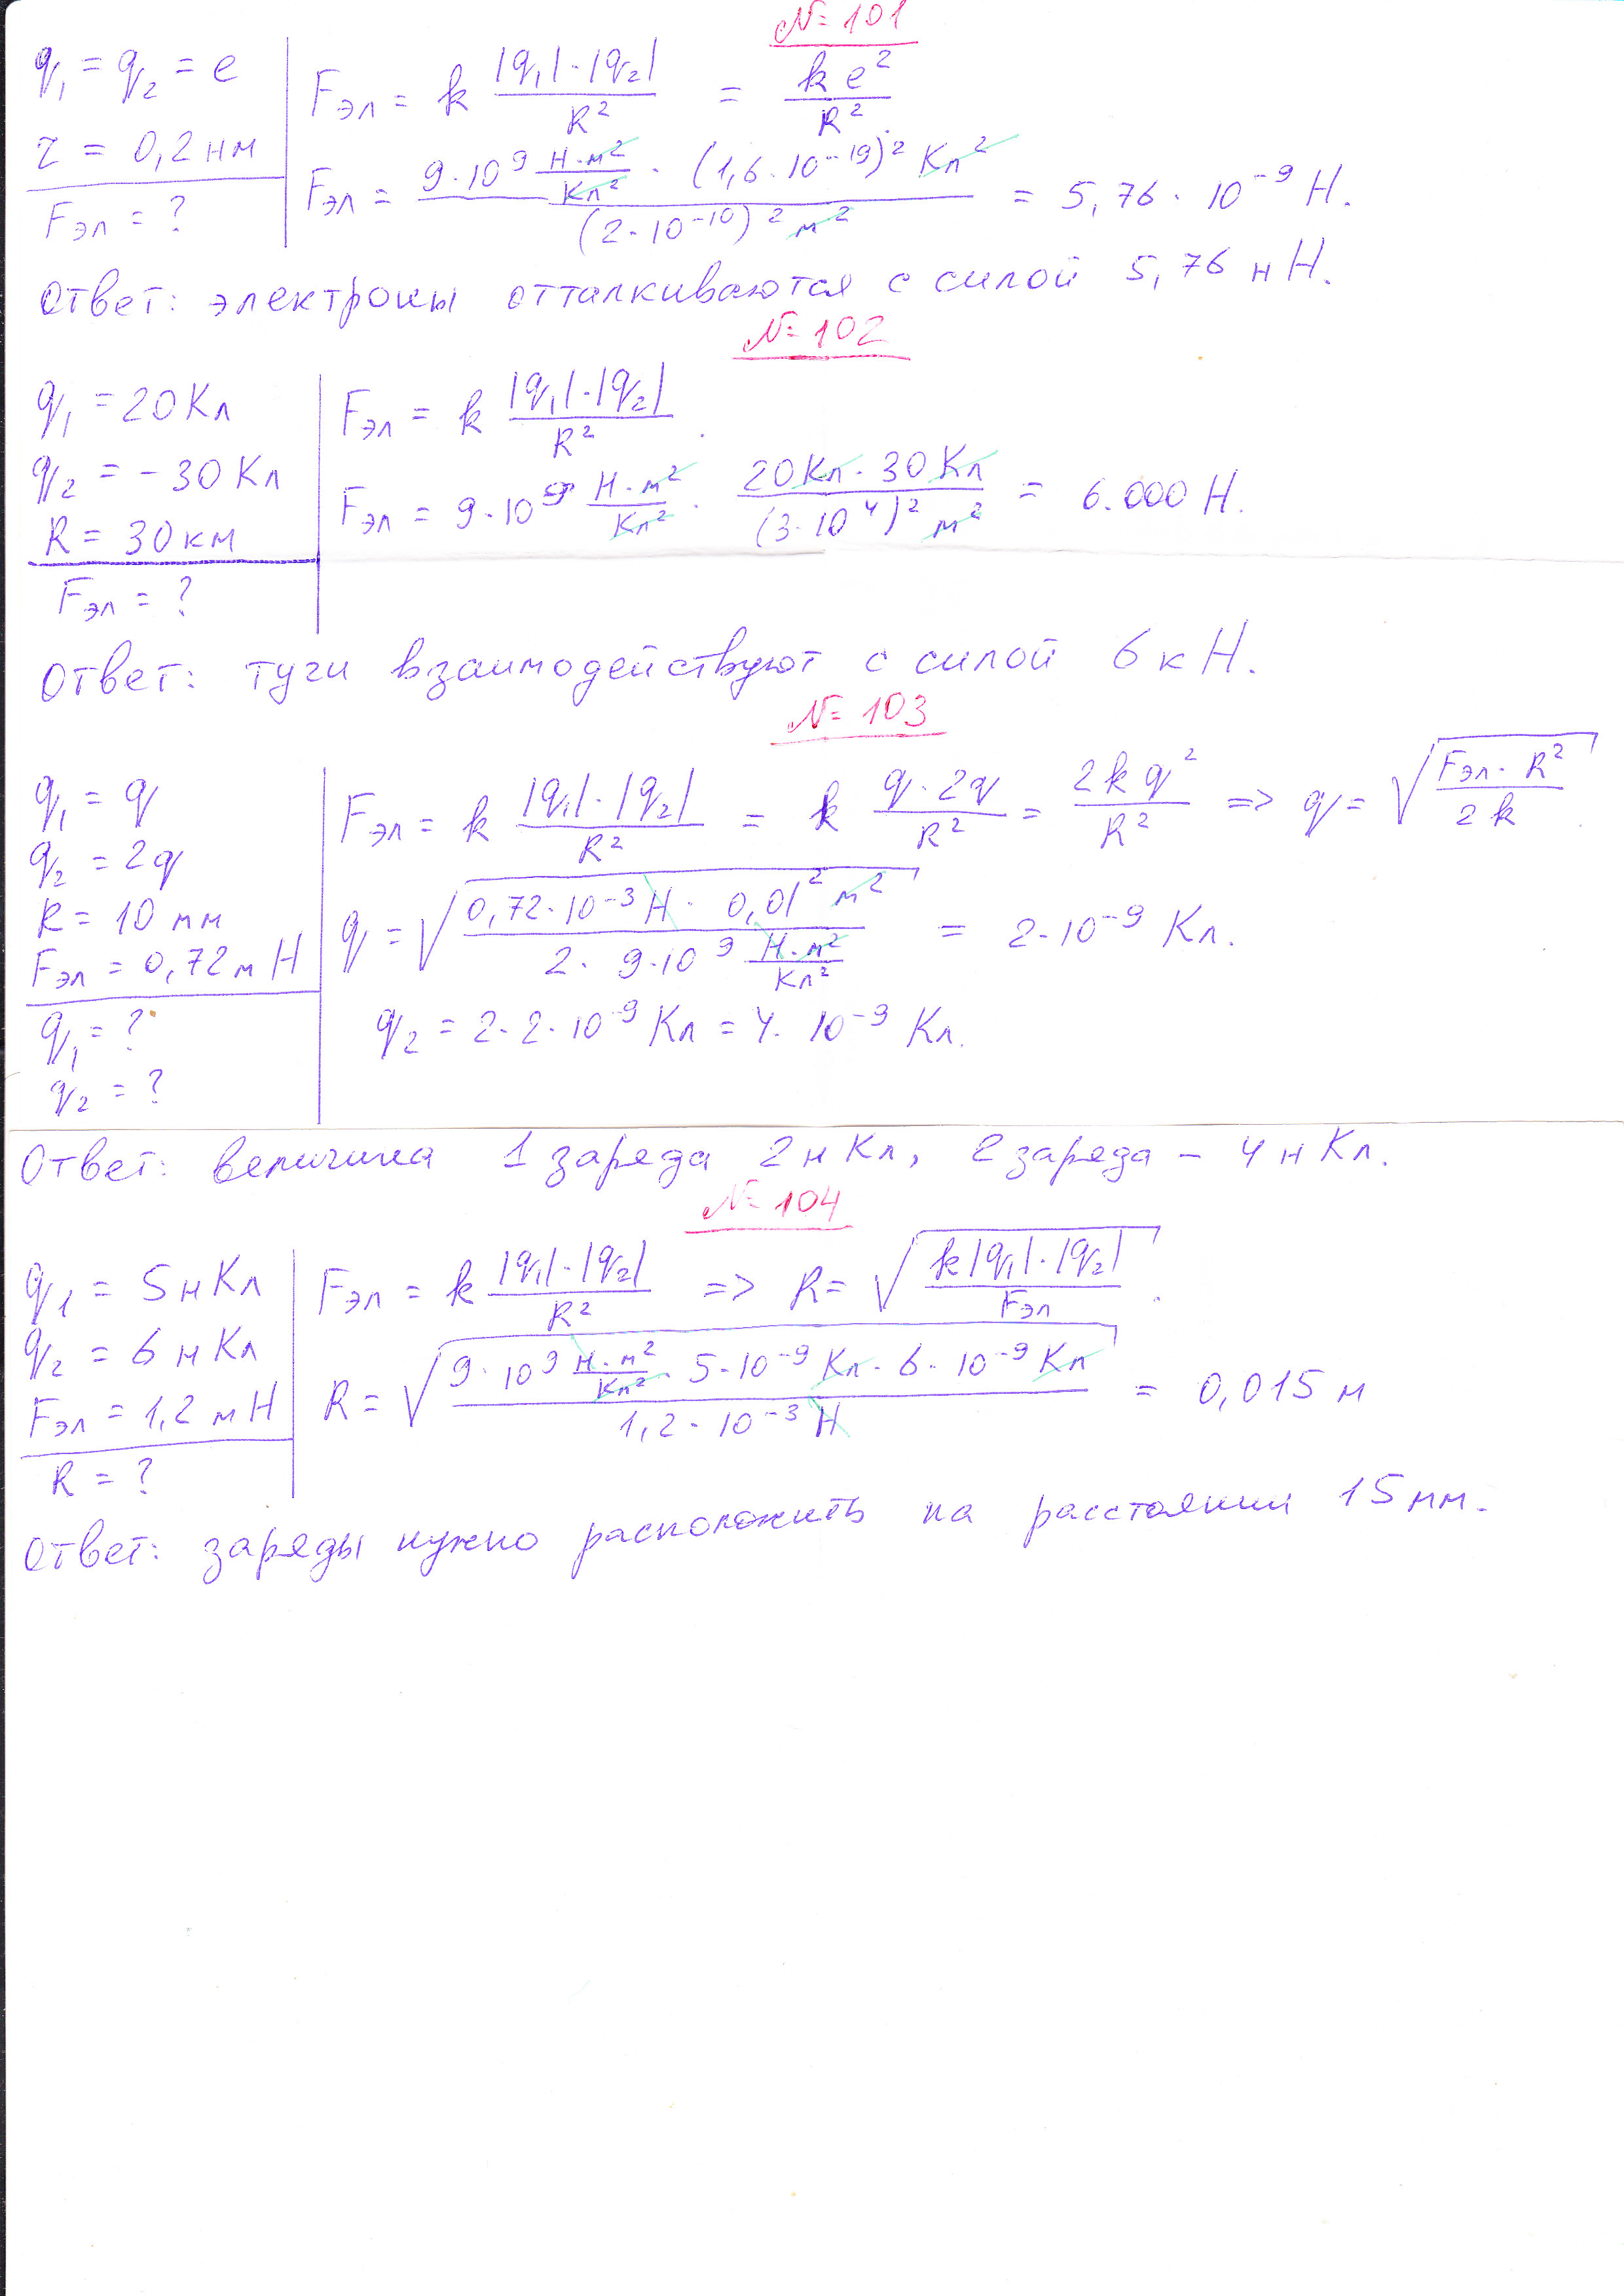 № 101
q₁ = q₂ = e
r = 0,2 нм
Fэл = ?
Fэл = k |q₁|·|q₂| / R² = k e² / R²
Fэл = 9·10⁹ Н·м²/Кл² · (1,6·10⁻¹⁹)² Кл² / (2·10⁻¹⁰)² м² = 5,76·10⁻⁹ Н.
Ответ: электроны отталкиваются с силой 5,76 нН.
№ 102
q₁ = 20 Кл
q₂ = - 30 Кл
R = 30 км
Fэл = ?
Fэл = k |q₁|·|q₂| / R²
Fэл = 9·10⁹ Н·м²/Кл² · 20 Кл · 30 Кл / (3·10⁴)² м² = 6.000 Н.
Ответ: тучи взаимодействуют с силой 6 кН.
№ 103
q₁ = q
q₂ = 2q
R = 10 мм
Fэл = 0,72 мН
q₁ = ?
q₂ = ?
Fэл = k |q₁|·|q₂| / R² = k q·2q / R² = 2kq² / R² => q = √(Fэл·R² / 2k)
q = √(0,72·10⁻³ Н · 0,01² м² / 2·9·10⁹ Н·м²/Кл²) = 2·10⁻⁹ Кл.
q₂ = 2·2·10⁻⁹ Кл = 4·10⁻⁹ Кл.
Ответ: величина 1 заряда 2 нКл, 2 заряда – 4 нКл.
№ 104
q₁ = 5 нКл
q₂ = 6 нКл
Fэл = 1,2 мН
R = ?
Fэл = k |q₁|·|q₂| / R² => R = √(k|q₁|·|q₂| / Fэл).
R = √(9·10⁹ Н·м²/Кл² · 5·10⁻⁹ Кл · 6·10⁻⁹ Кл / 1,2·10⁻³ Н) = 0,015 м
Ответ: заряды нужно расположить на расстоянии 15 мм.